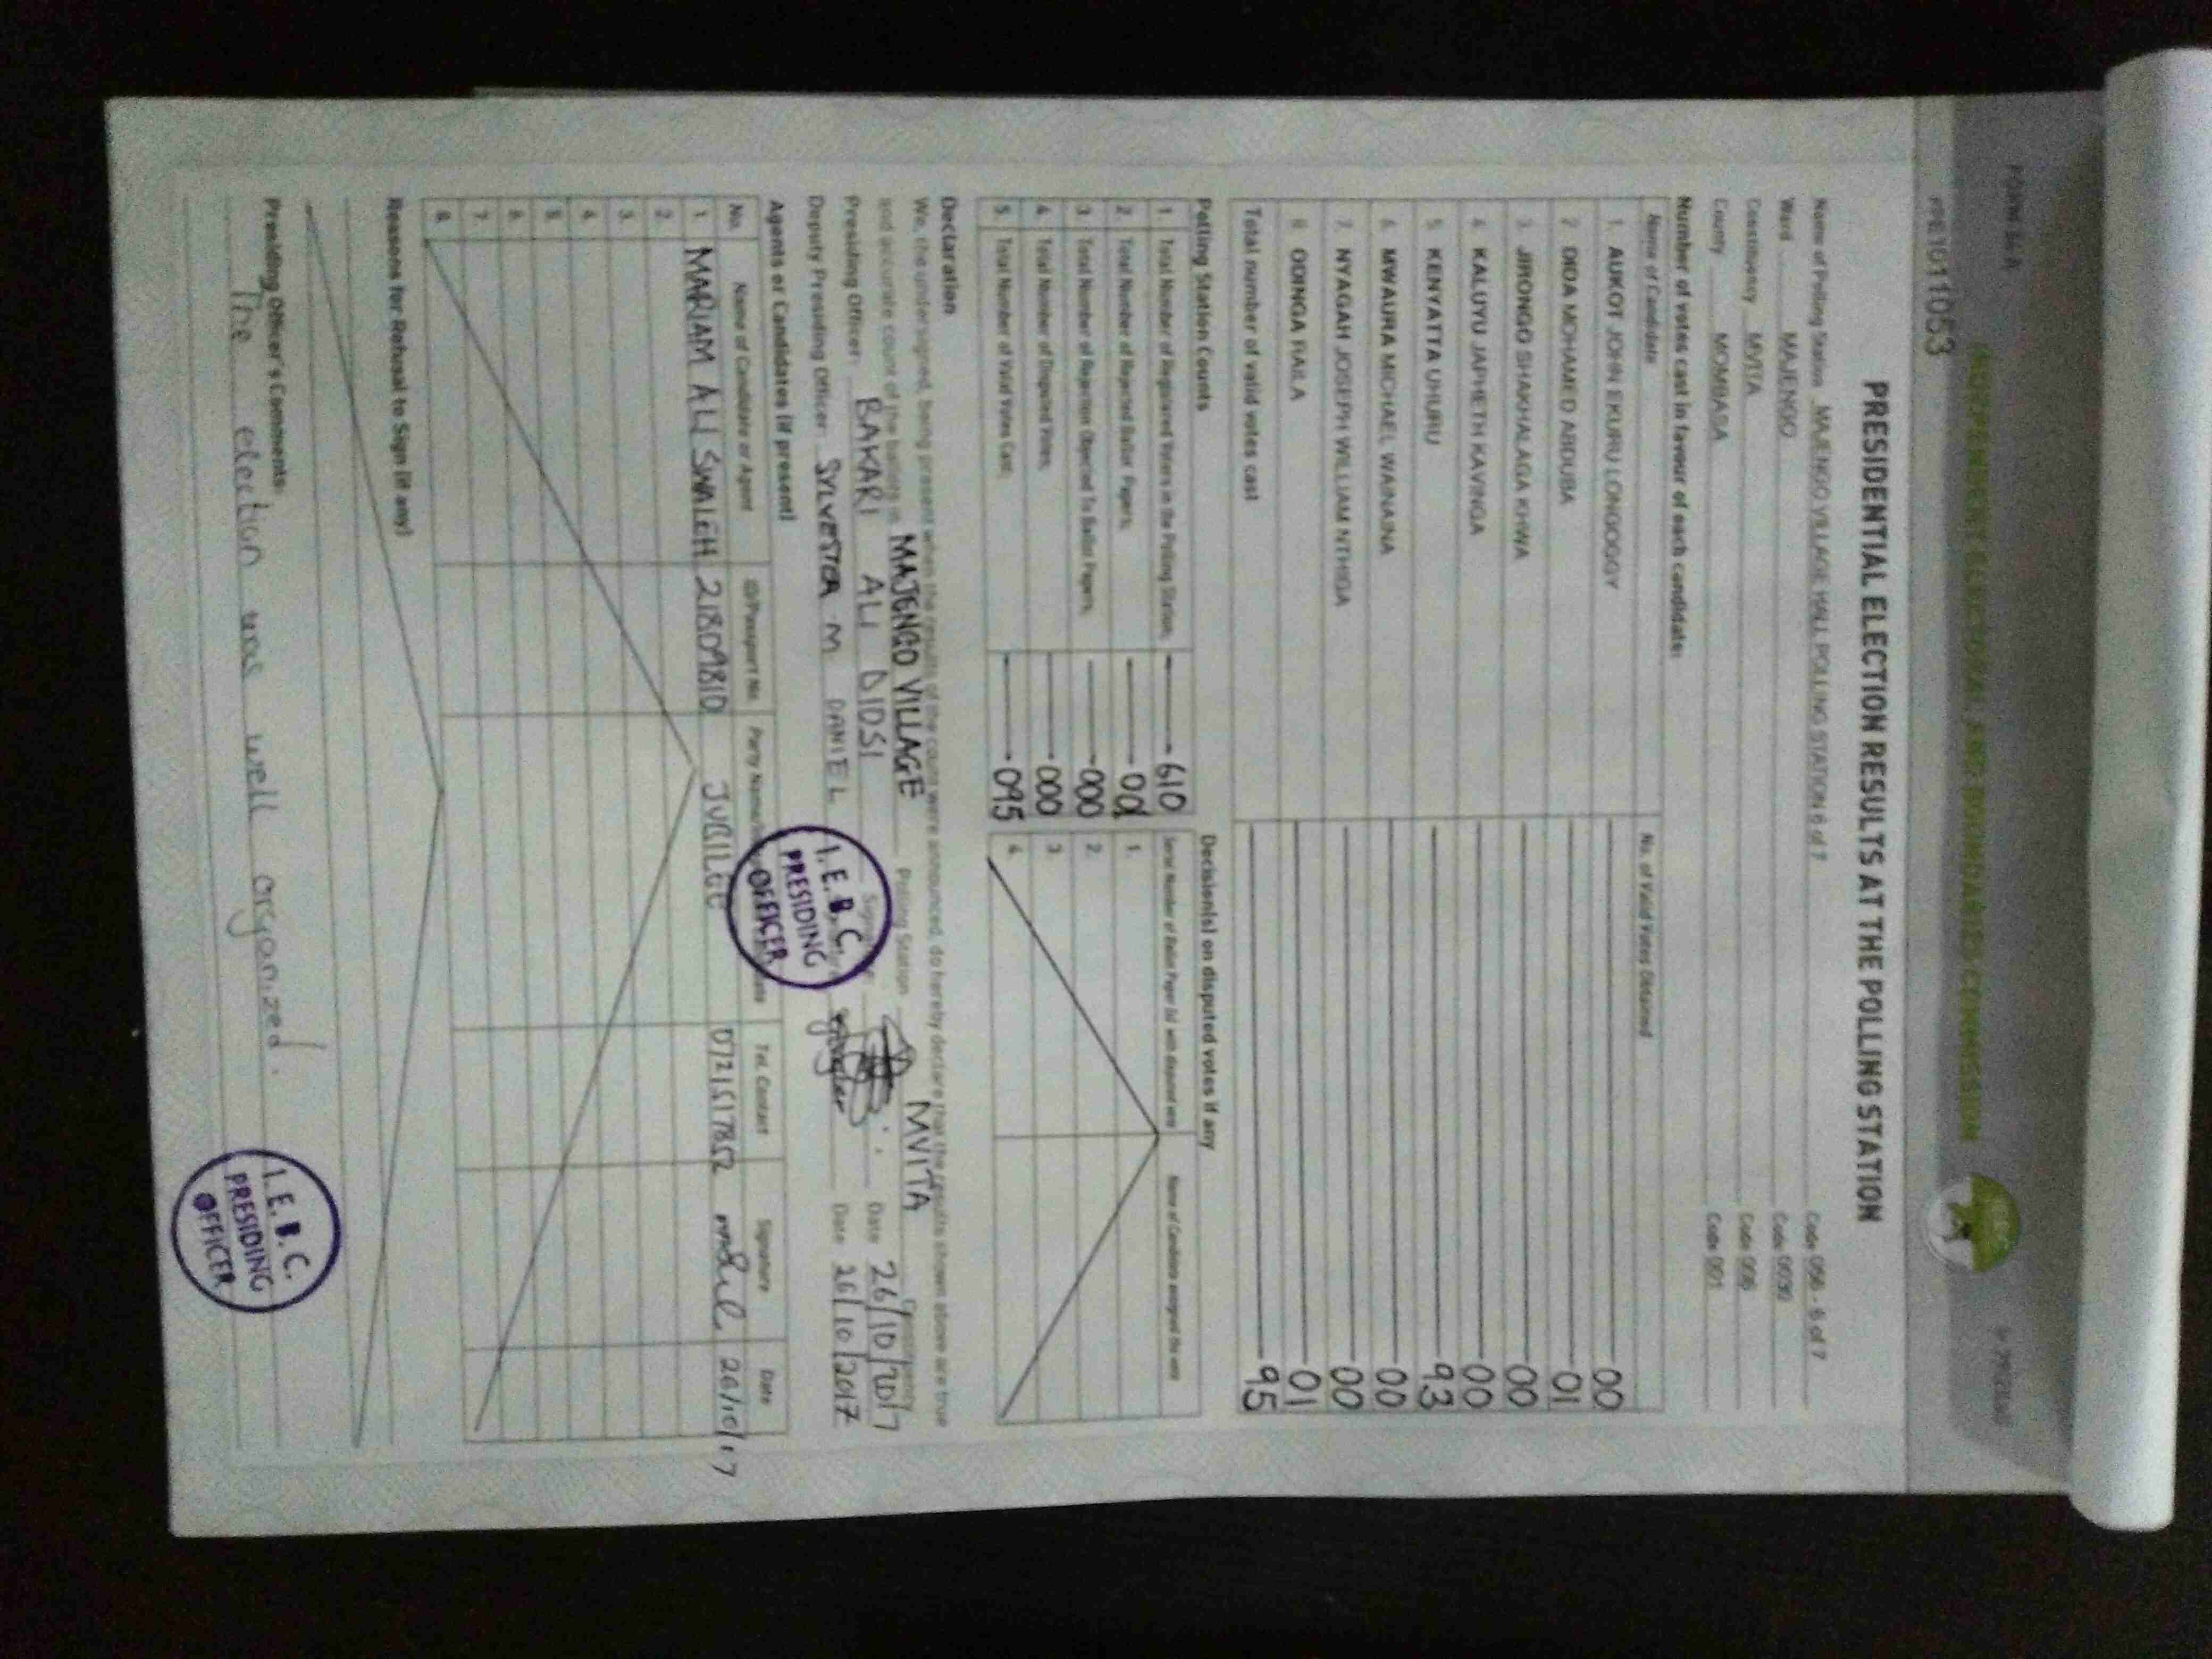 FORM 34A
INDEPENDENT ELECTORAL AND BOUNDARIES COMMISSION
PRESIDENTIAL ELECTION RESULTS AT THE POLLING STATION
Name of Polling Station MAJENGO VILLAGE HALL POLLING STATION 6 of 7 Code 056 - 6 of 7
Ward MAJENGO Code 0030
Constituency MVITA Code 006
County MOMBASA Code 001
Number of votes cast in favour of each candidate:
Name of Candidate No. of Valid Votes Obtained
1. AUKOT JOHN EKURU LONGOGGY 00
2 DIDA MOHAMED ABDUBA 01
3. JIRONGO SHAKHALAGA KHWA 00
4 KALUYU JAPHETH KAVINGA 00
5 KENYATTA UHURU 93
6. MWAURA MICHAEL WAINAINA 00
7. NYAGAH JOSEPH WILLIAM NTHIGA 00
8 ODINGA RAILA 01
Total number of valid votes cast 95
Polling Station Counts
1. Total Number of Registered Voters in the Polling Station; 610
2. Total Number of Rejected Ballot Papers;
3. Total Number of Rejection Objected To Ballot Papers; 000
4. Total Number of Disputed Votes; 000
5. Total Number of Valid Votes Cast; 095
Decision(s) on disputed votes if any
Serial Number of Ballot Paper (s) with disputed vote Name of Candidate assigned the vote
1.
2.
3.
4.
Declaration
We, the undersigned, being present when the results of the count were announced, do hereby declare that the results shown above are true
and accurate count of the ballots in MAJENGO VILLAGE Polling Station MVITA Constituency
Presiding Officer: BAKARI ALI DIDSI Signature Date 26/10/2017
Deputy Presiding Officer: SYLVESTER M DANIEL Date 26/10/2017
I.E.B.C. PRESIDING OFFICER
Agents or Candidates (if present)
No. Name of Candidate or Agent ID/Passport No. Tel. Contact Signature Date
1 MARIAM ALI SWALEH 21809810 JUBILEE 0721517852 26/10/17
2.
3.
4.
5.
6.
7.
8.
Reasons for Refusal to Sign (if any)
Presiding Officer's Comments:
The election was well organized.
I.E.B.C. PRESIDING OFFICER